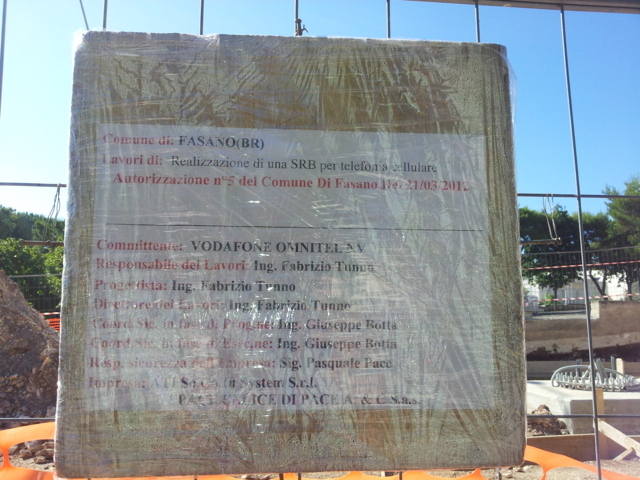 Comune di: FASANO(BR)
Lavori di: Realizzazione di una SRB per telefonia cellulare
Autorizzazione n°5 del Comune Di Fasano Del 21/03/2012
Committente: VODAFONE OMNITEL NV
Responsabile dei Lavori: Ing. Fabrizio Tunno
Progettista: Ing. Fabrizio Tunno
Direttore dei Lavori: Ing. Fabrizio Tunno
Coord. Sic. in fase di Prog.ne: Ing. Giuseppe Botta
Coord. Sic. in fase di Esec.ne: Ing. Giuseppe Botta
Resp. sicurezza dell'Impresa: Sig. Pasquale Pace
Impresa: ATI System S.r.l.
DI PACE A. & C S.a.s.